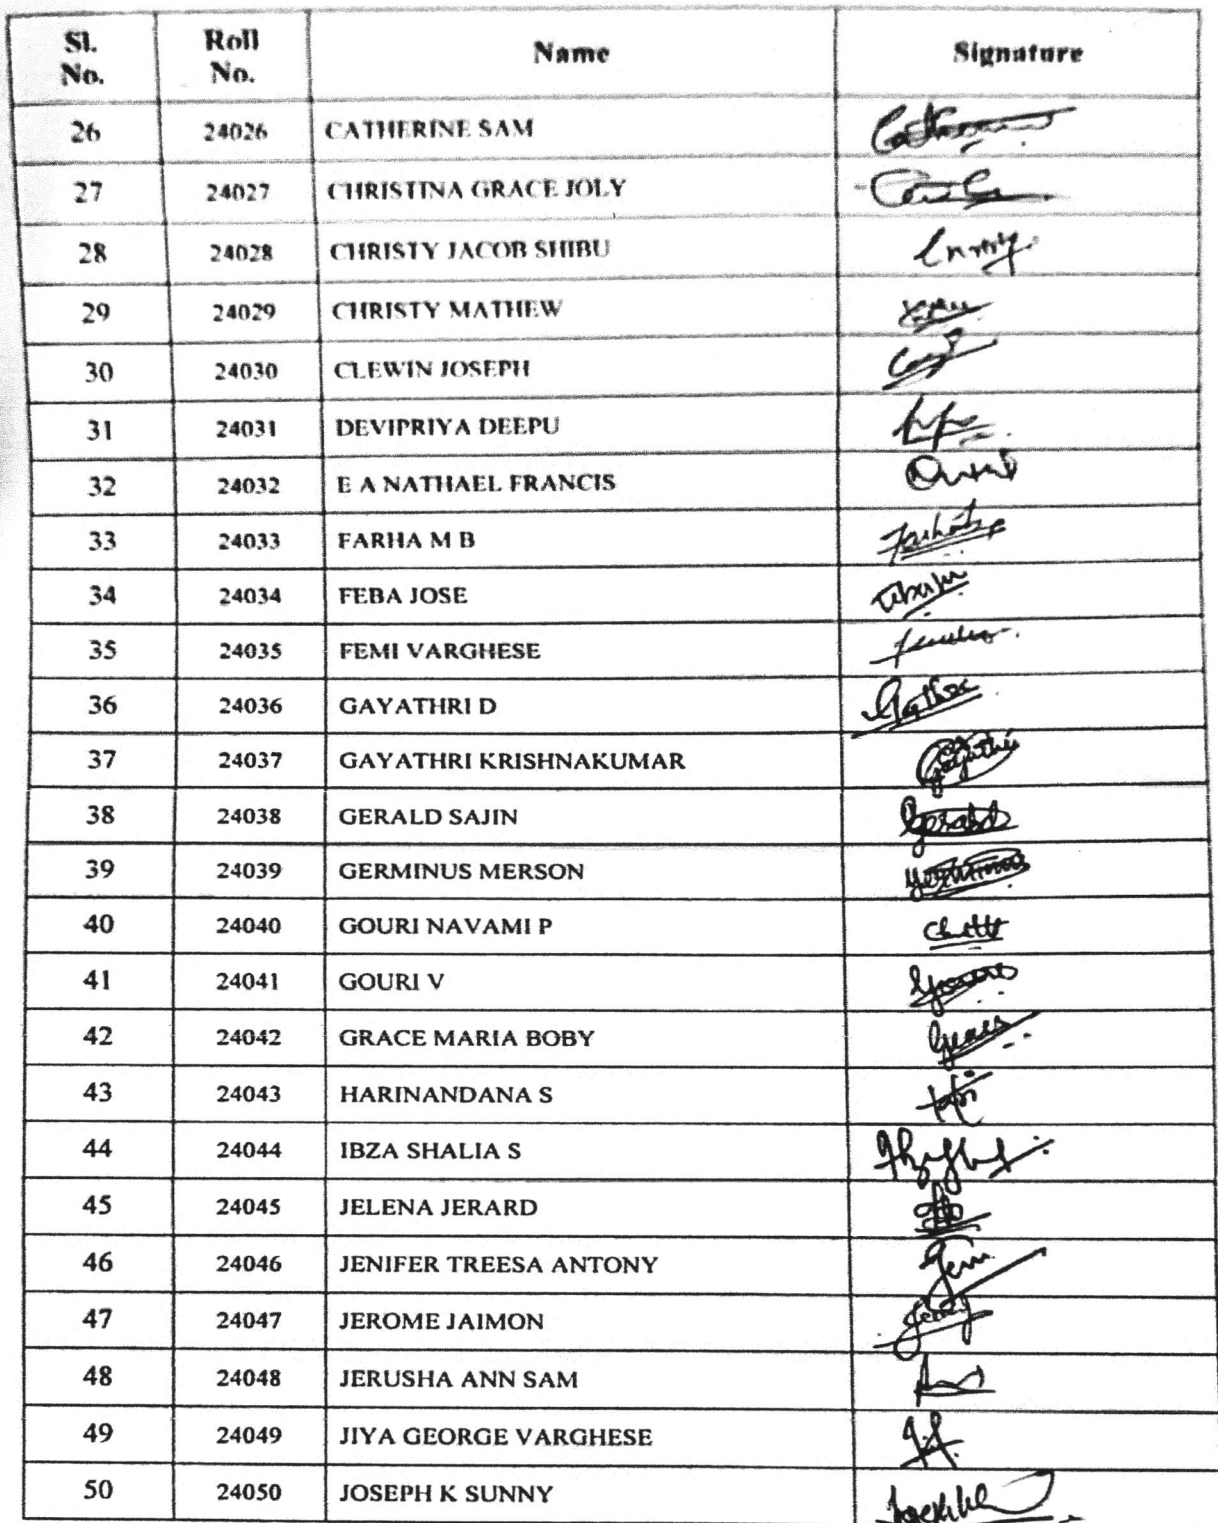 Sl. No. Roll No. Name Signature
26 24026 CATHERINE SAM
27 24027 CHRISTINA GRACE JOLY
28 24028 CHRISTY JACOB SHIBU
29 24029 CHRISTY MATHEW
30 24030 CLEWIN JOSEPH
31 24031 DEVIPRIYA DEEPU
32 24032 E A NATHAEL FRANCIS
33 24033 FARHA M B
34 24034 FEBA JOSE
35 24035 FEMI VARGHESE
36 24036 GAYATHRI D
37 24037 GAYATHRI KRISHNAKUMAR Gayathri
38 24038 GERALD SAJIN Gerald
39 24039 GERMINUS MERSON
40 24040 GOURI NAVAMI P
41 24041 GOURI V
42 24042 GRACE MARIA BOBY Grace
43 24043 HARINANDANA S
44 24044 IBZA SHALIA S
45 24045 JELENA JERARD
46 24046 JENIFER TREESA ANTONY
47 24047 JEROME JAIMON
48 24048 JERUSHA ANN SAM
49 24049 JIYA GEORGE VARGHESE
50 24050 JOSEPH K SUNNY